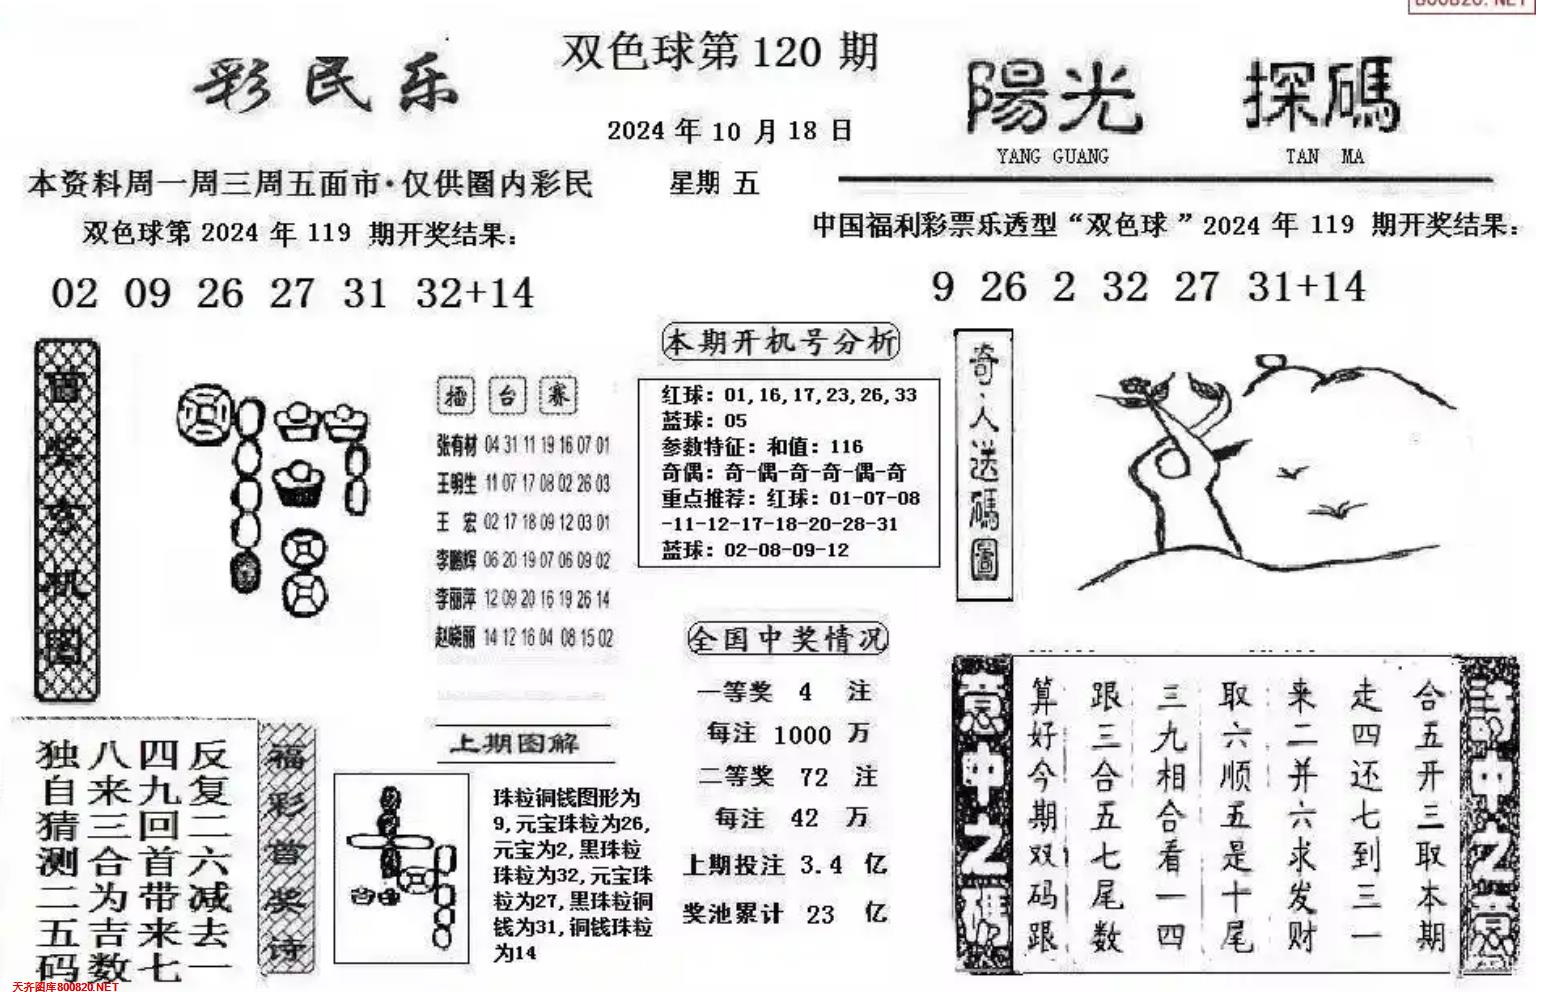 800820.NET
彩民乐
双色球第120期
2024年10月18日
星期五
陽光 探碼
YANG GUANG TAN MA
本资料周一周三周五面市·仅供圈内彩民
双色球第2024年119期开奖结果：
02 09 26 27 31 32+14
中国福利彩票乐透型“双色球”2024年119期开奖结果：
9 26 2 32 27 31+14
首奖玄机图
擂台赛
张有材 04 31 11 19 16 07 01
王明生 11 07 17 08 02 26 03
王 宏 02 17 18 09 12 03 01
李鹏辉 06 20 19 07 06 09 02
李丽萍 12 09 20 16 19 26 14
赵晓丽 14 12 16 04 08 15 02
本期开机号分析
红球：01,16,17,23,26,33
蓝球：05
参数特征：和值：116
奇偶：奇-偶-奇-奇-偶-奇
重点推荐：红球：01-07-08
-11-12-17-18-20-28-31
蓝球：02-08-09-12
奇人送碼圖
全国中奖情况
一等奖 4 注
每注 1000 万
二等奖 72 注
每注 42 万
上期投注 3.4 亿
奖池累计 23 亿
福彩首奖诗
反复二六减去一
四九回首带来七
八来三合为吉数
独自猜测二五码
上期图解
珠粒铜钱图形为
9,元宝珠粒为26,
元宝为2,黑珠粒
珠粒为32,元宝珠
粒为27,黑珠粒铜
钱为31,铜钱珠粒
为14
诗中之意
合五开三取本期
走四还七到三一
来二并六求发财
取六顺五是十尾
三九相合看一四
跟三合五七尾数
算好今期双码跟
意中之碼
天齐图库800820.NET